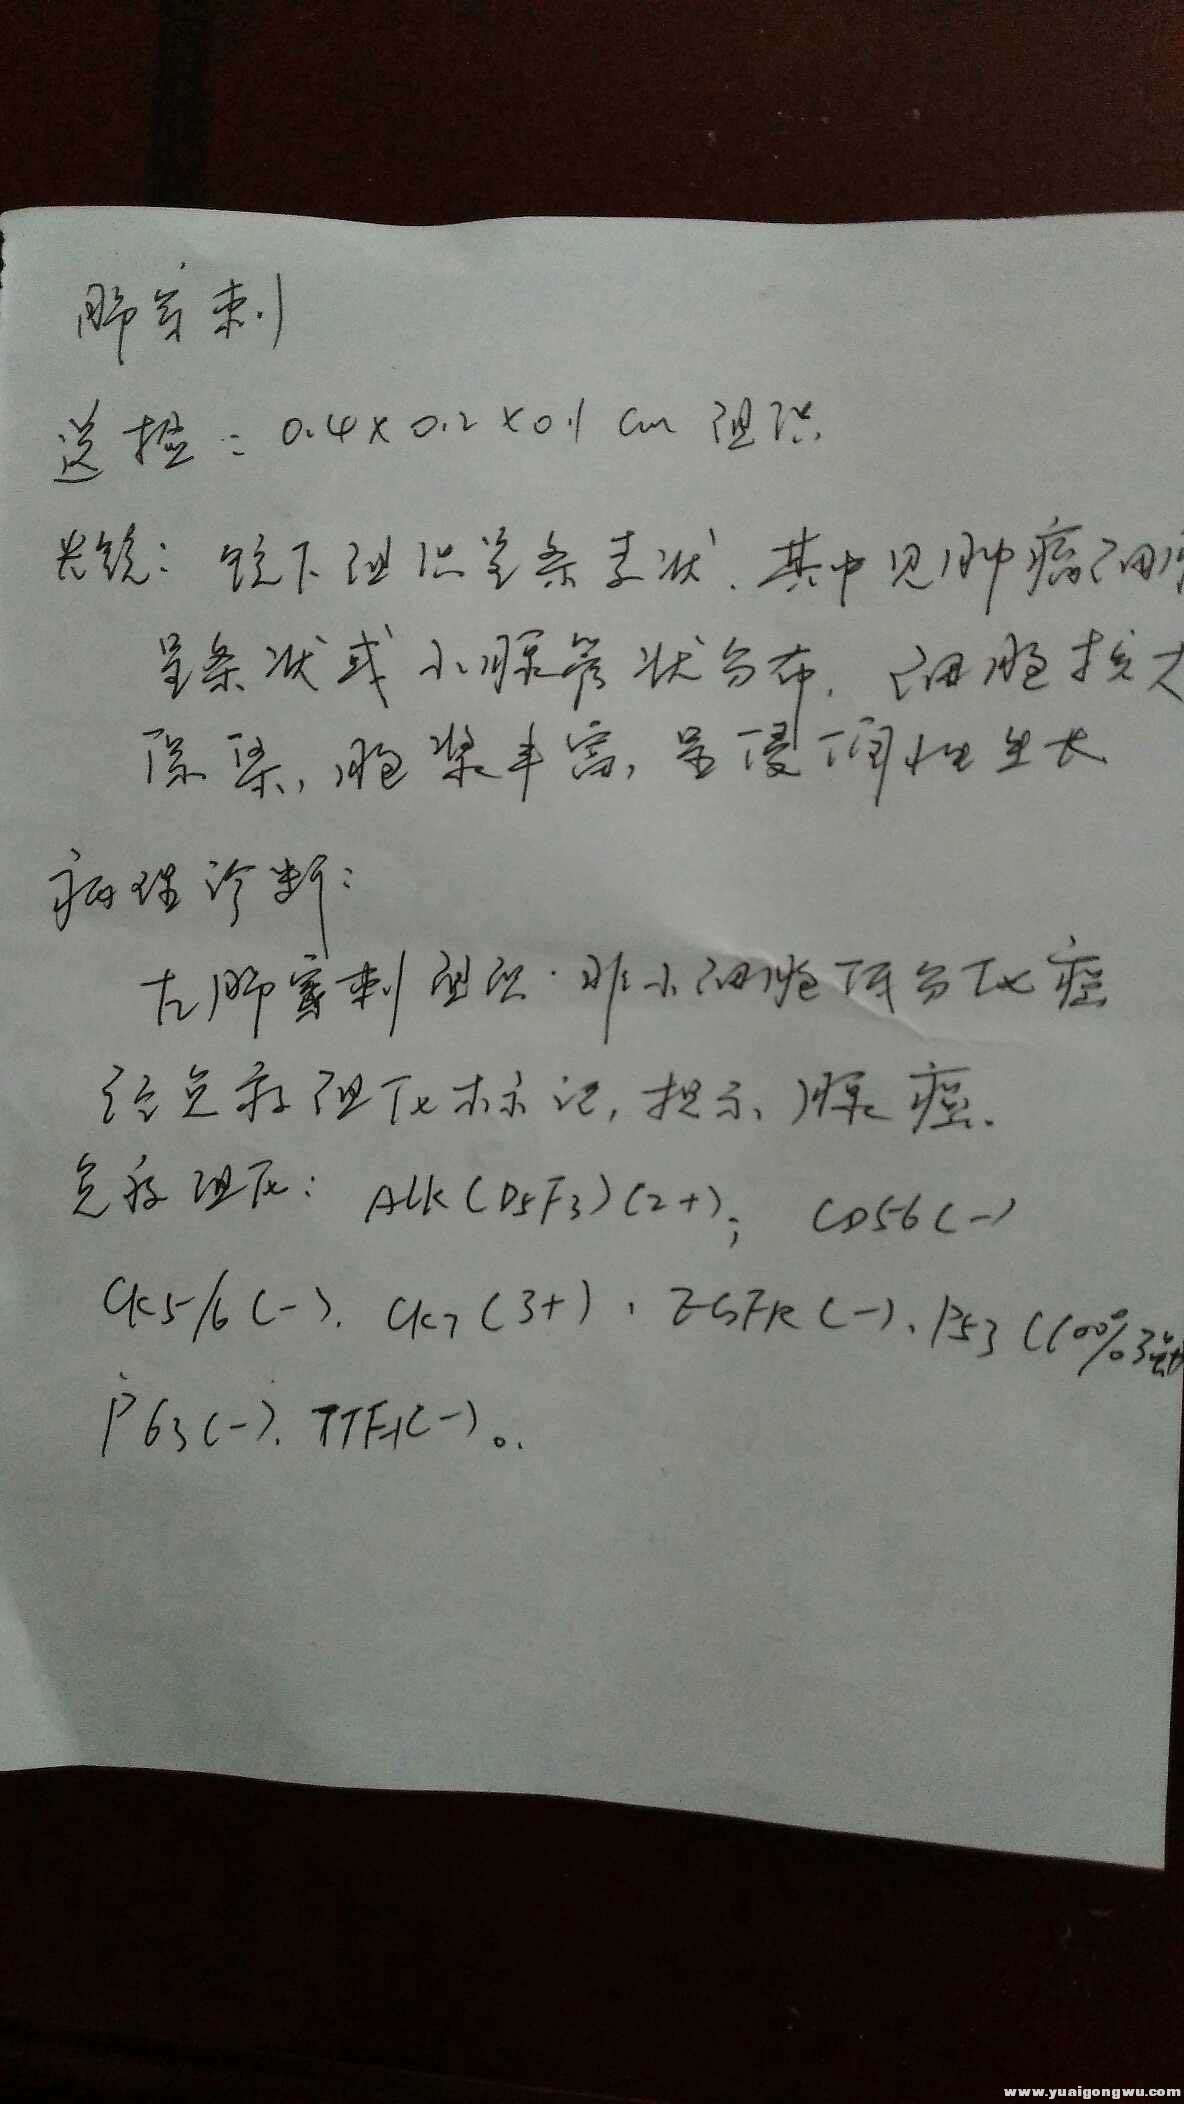 肺穿刺
送检：0.4×0.2×0.1cm 组织
光镜：镜下组织呈条索状，其中见肿瘤细胞
呈条状或小腺管状分布，细胞核大
深染，胞浆丰富，呈侵润性生长
病理诊断：
左肺穿刺组织：非小细胞低分化癌
结合免疫组化标记，提示腺癌.
免疫组化：ALK(D5F3)(2+)； CD56(-)
CK5/6(-)、CK7(3+)、EGFR(-)、P53(100%3
P63(-)、TTF1(-)。
www.yuaigongwu.com